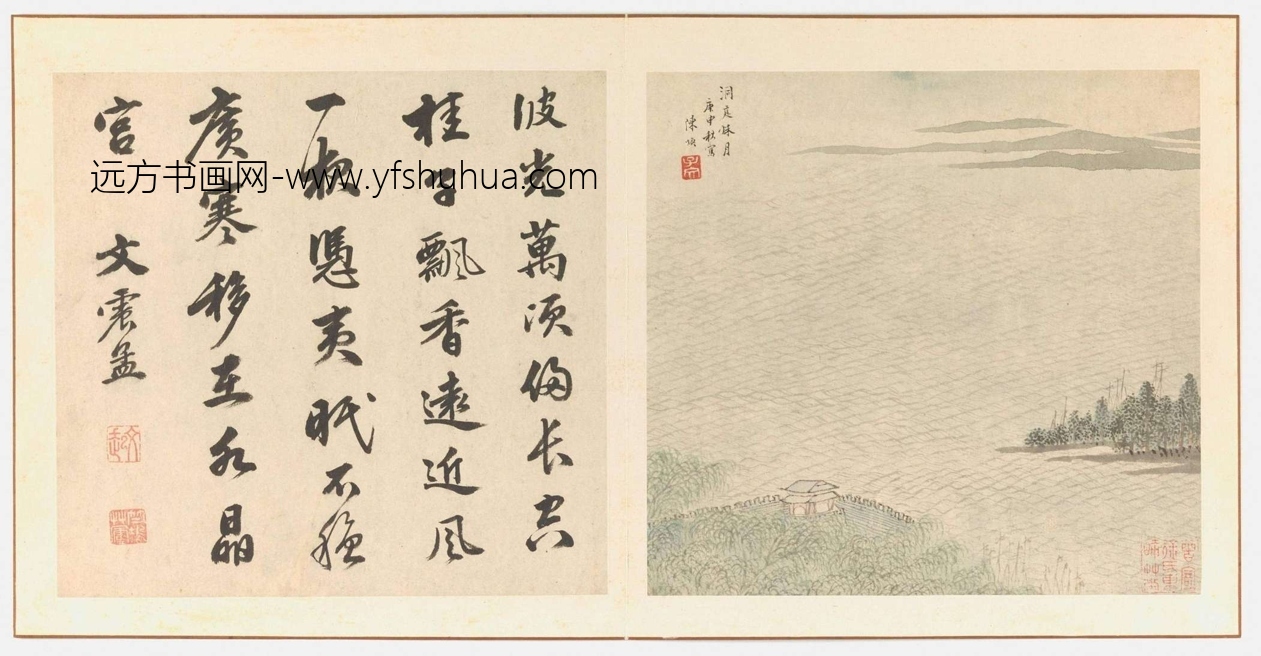 洞庭秌月
庚申秋寫
陳煥
子文
波光萬頃长空
桂子飄香遠近風
一夜憑夷眠不穩
廣寒移在水晶
宮 文震孟
文起
远方书画网-www.yfshuhua.com